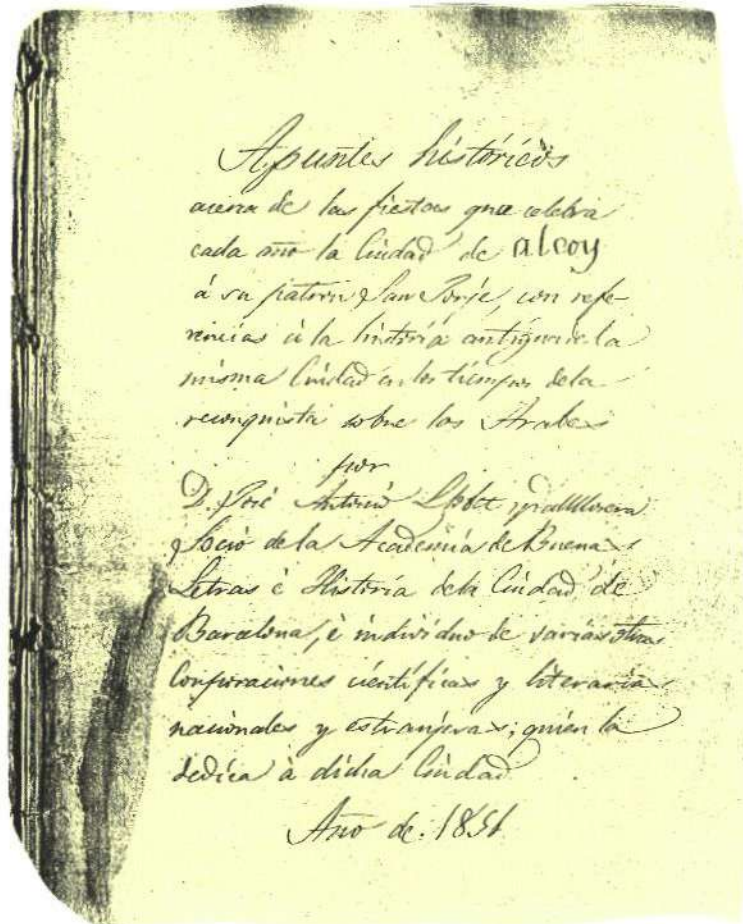 Apuntes históricos
acerca de las fiestas que celebra
cada año la Ciudad de alcoy
á su patron San Jorje, con refe-
rencias á la historia antigua de la
misma Ciudad en los tiempos de la
reconquista sobre los Arabes
por
D. José Antonio
Socio de la Academia de Buenas
Letras é Historia de la Ciudad de
Barcelona, é individuo de varias otras
Corporaciones científicas y literarias
nacionales y estranjeras; quien la
dedica á dicha Ciudad
Año de 1851